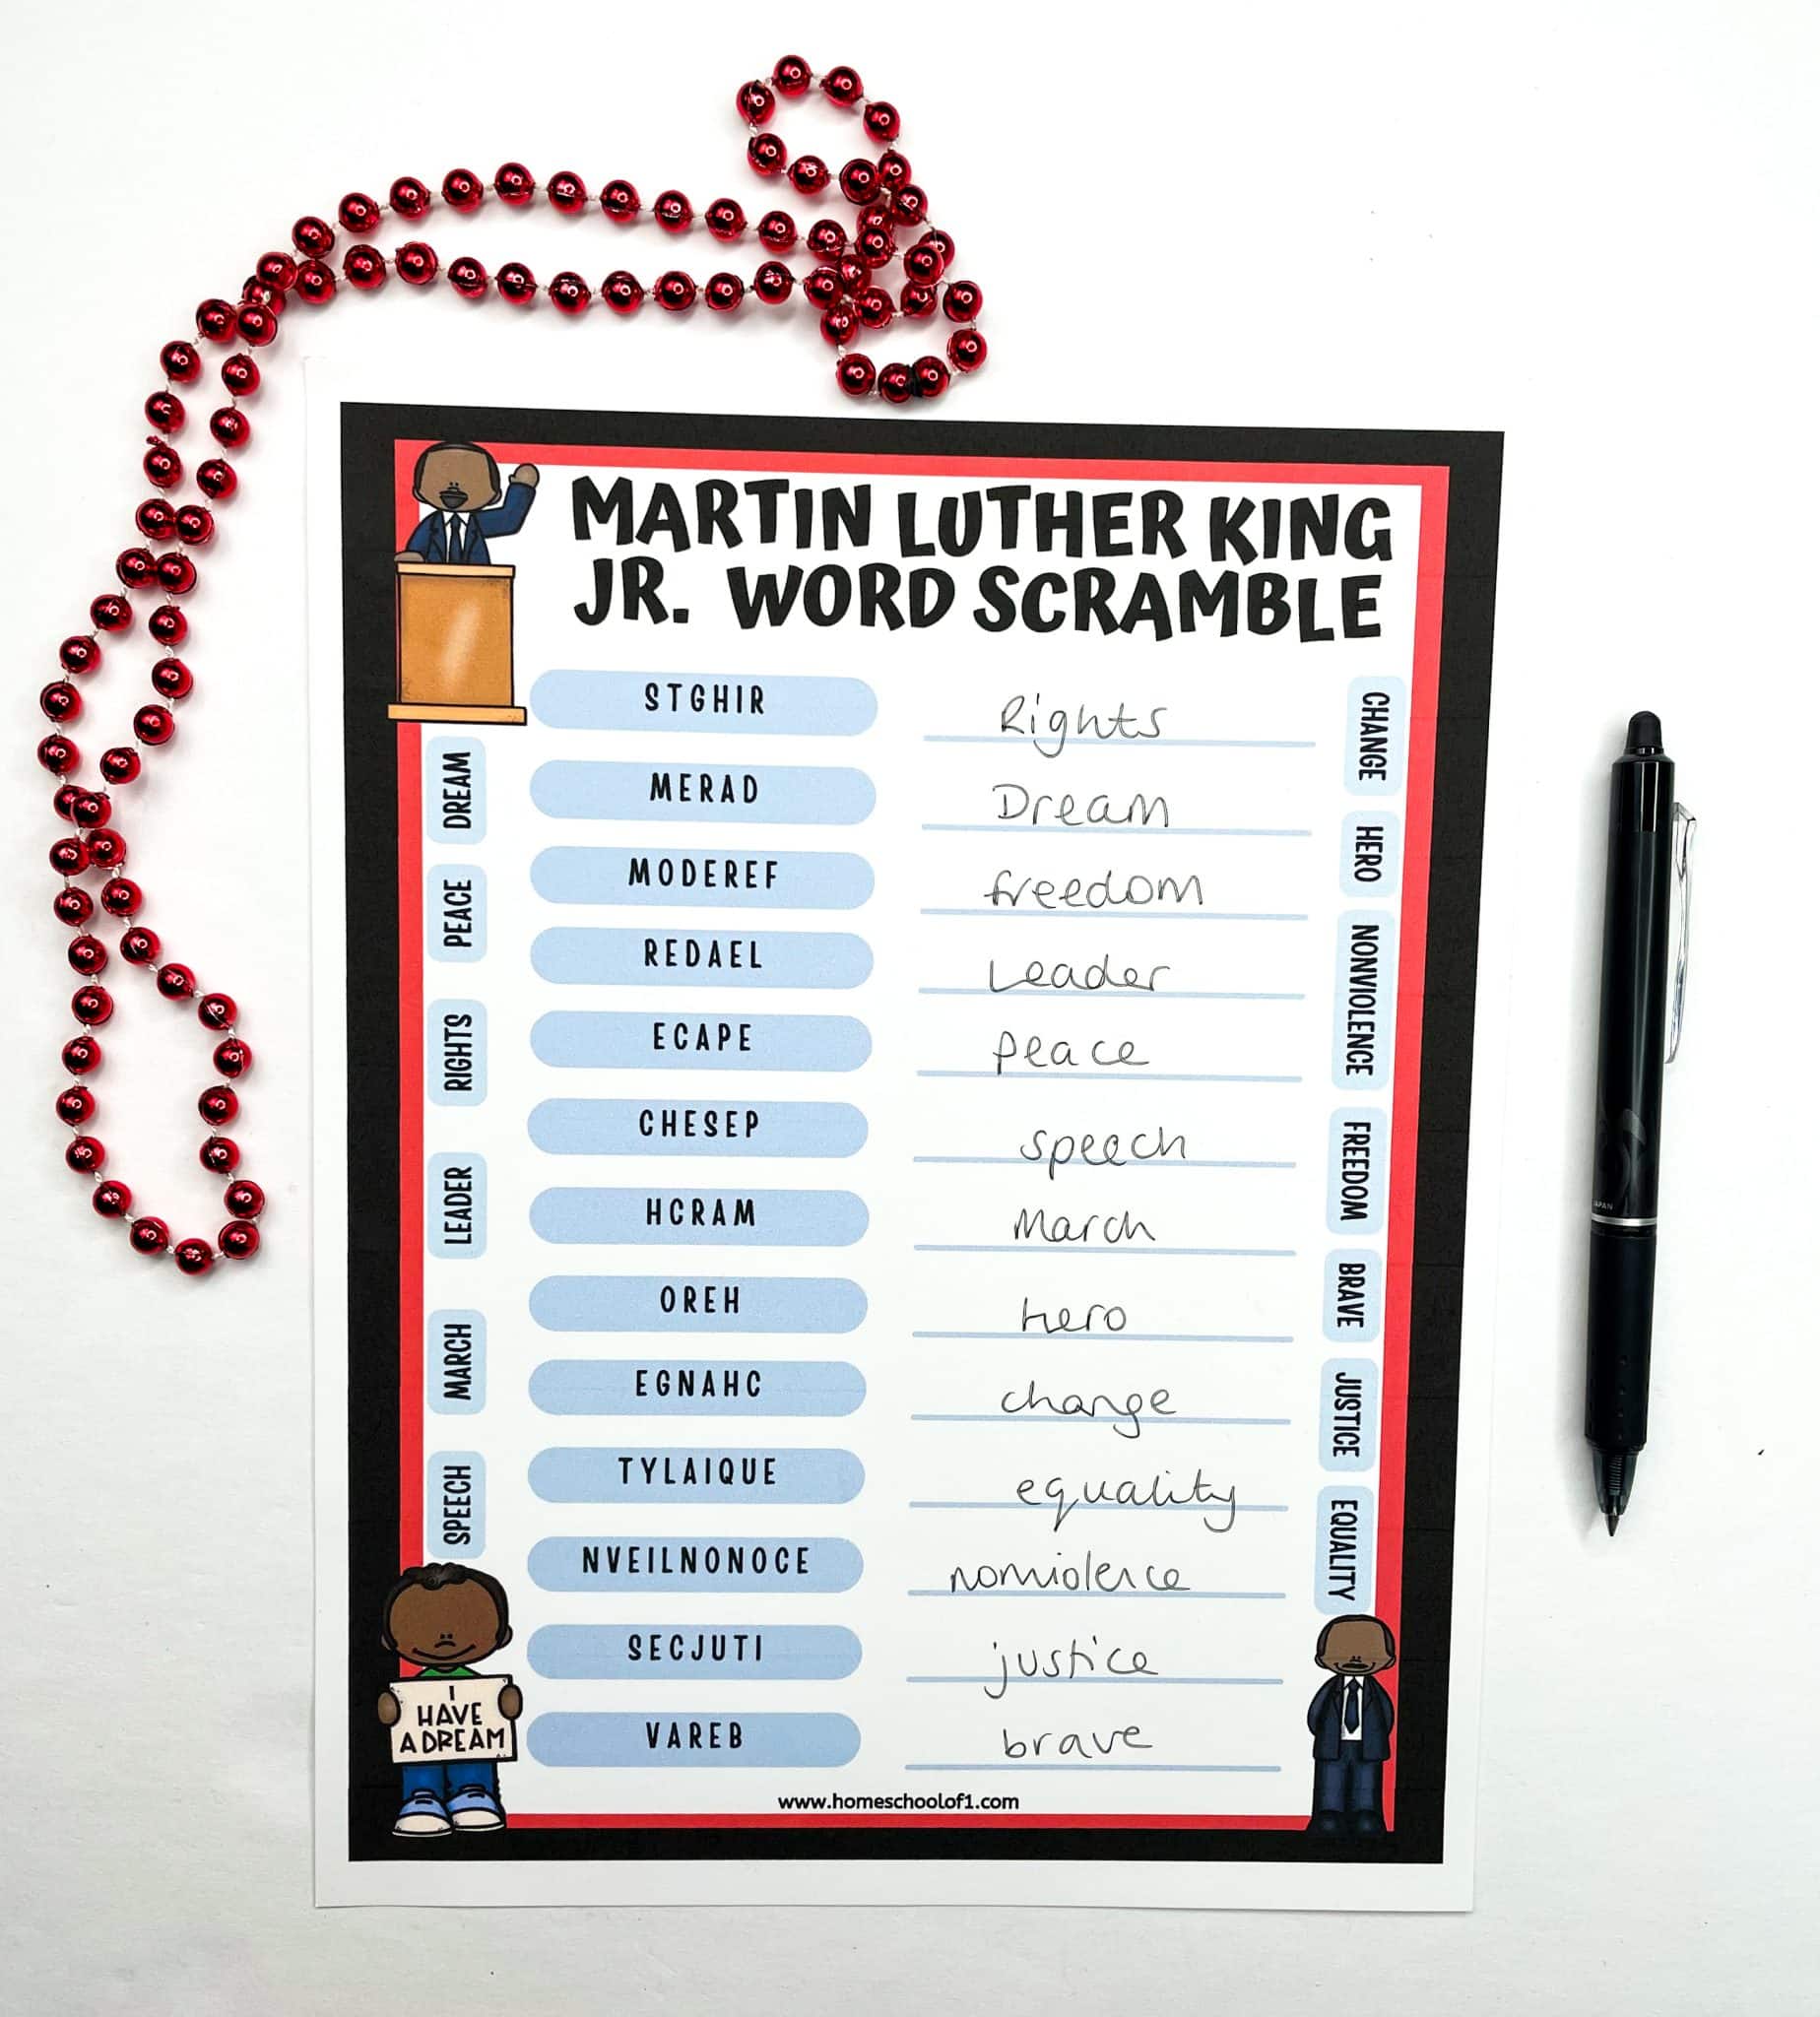 MARTIN LUTHER KING
JR. WORD SCRAMBLE
STGHIR Rights
MERAD Dream
MODEREF freedom
REDAEL Leader
ECAPE peace
CHESEP speech
HCRAM March
OREH hero
EGNAHC change
TYLAIQUE equality
NVEILNONOCE nonviolence
SECJUTI justice
VAREB brave
DREAM
PEACE
RIGHTS
LEADER
MARCH
SPEECH
CHANGE
HERO
NONVIOLENCE
FREEDOM
BRAVE
JUSTICE
EQUALITY
I
HAVE
A DREAM
www.homeschoolof1.com
JAPAN